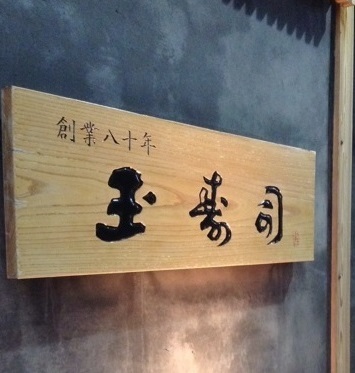 創業八十年
玉寿司